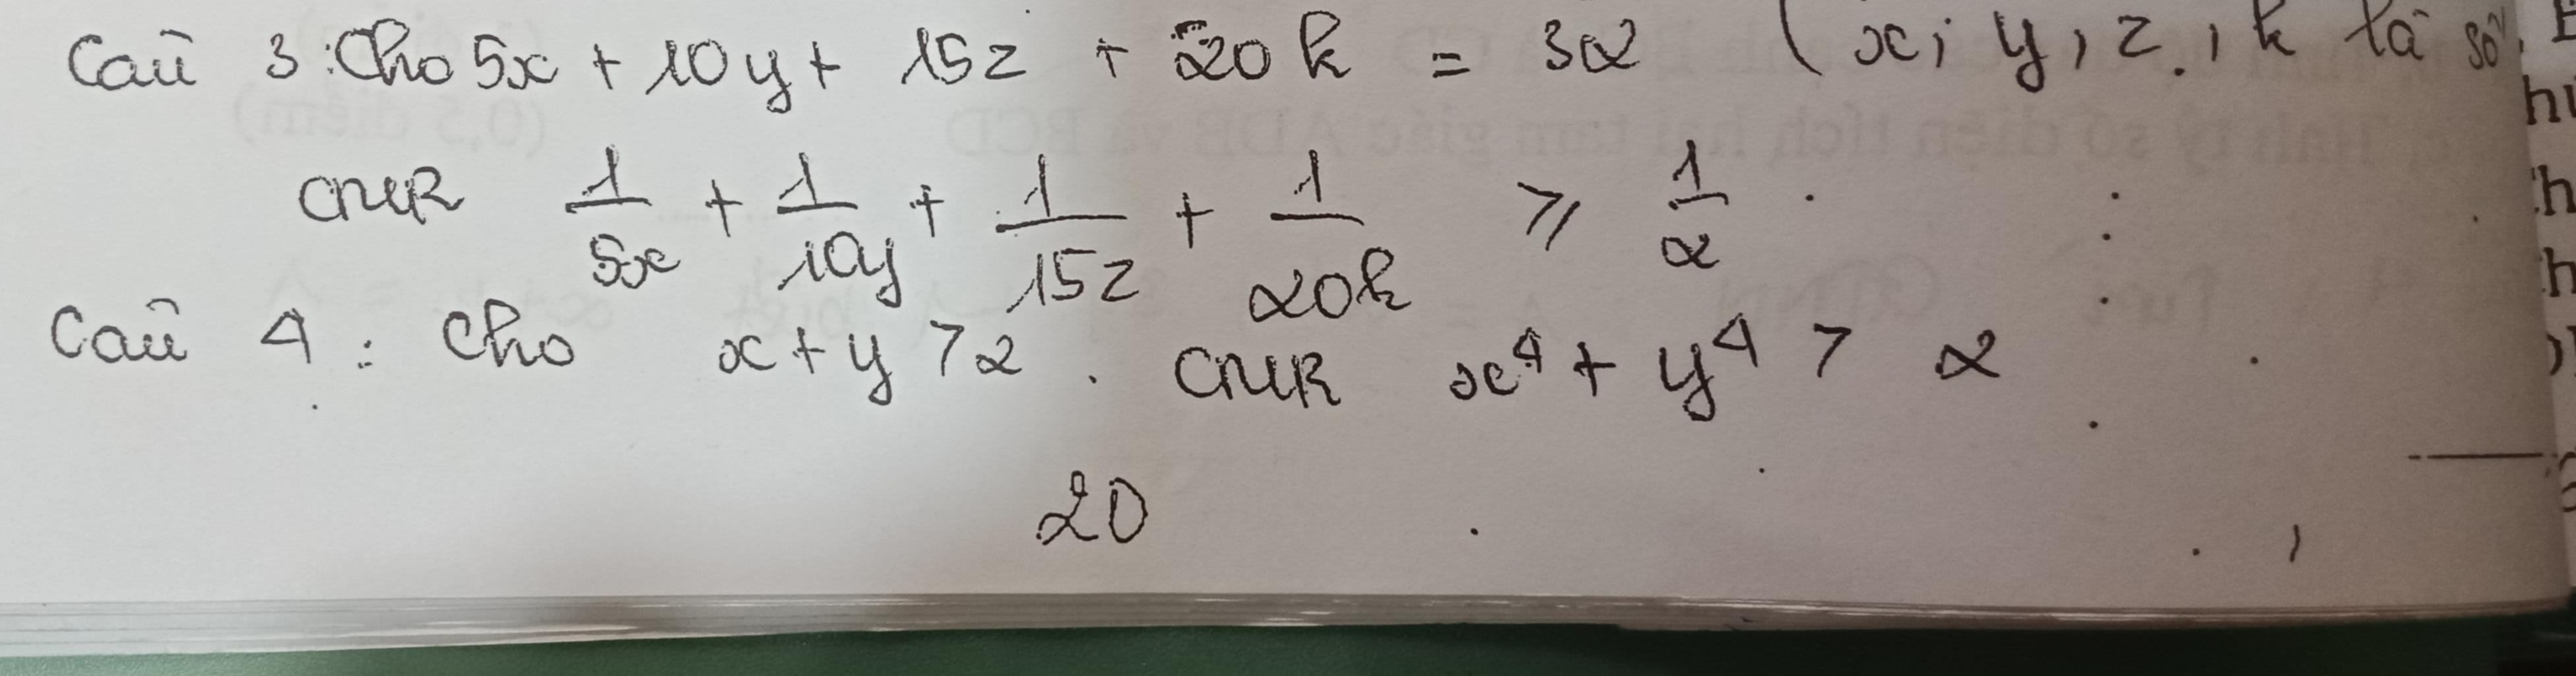 Câu 3: Cho 5x + 10y + 15z + 20k = 32 ( x, y, z, k là số
CMR 1/5x + 1/10y + 1/15z + 1/20k ⩾ 1/2
Câu 4 : Cho x + y > 2 . CMR x⁴ + y⁴ > 2
20